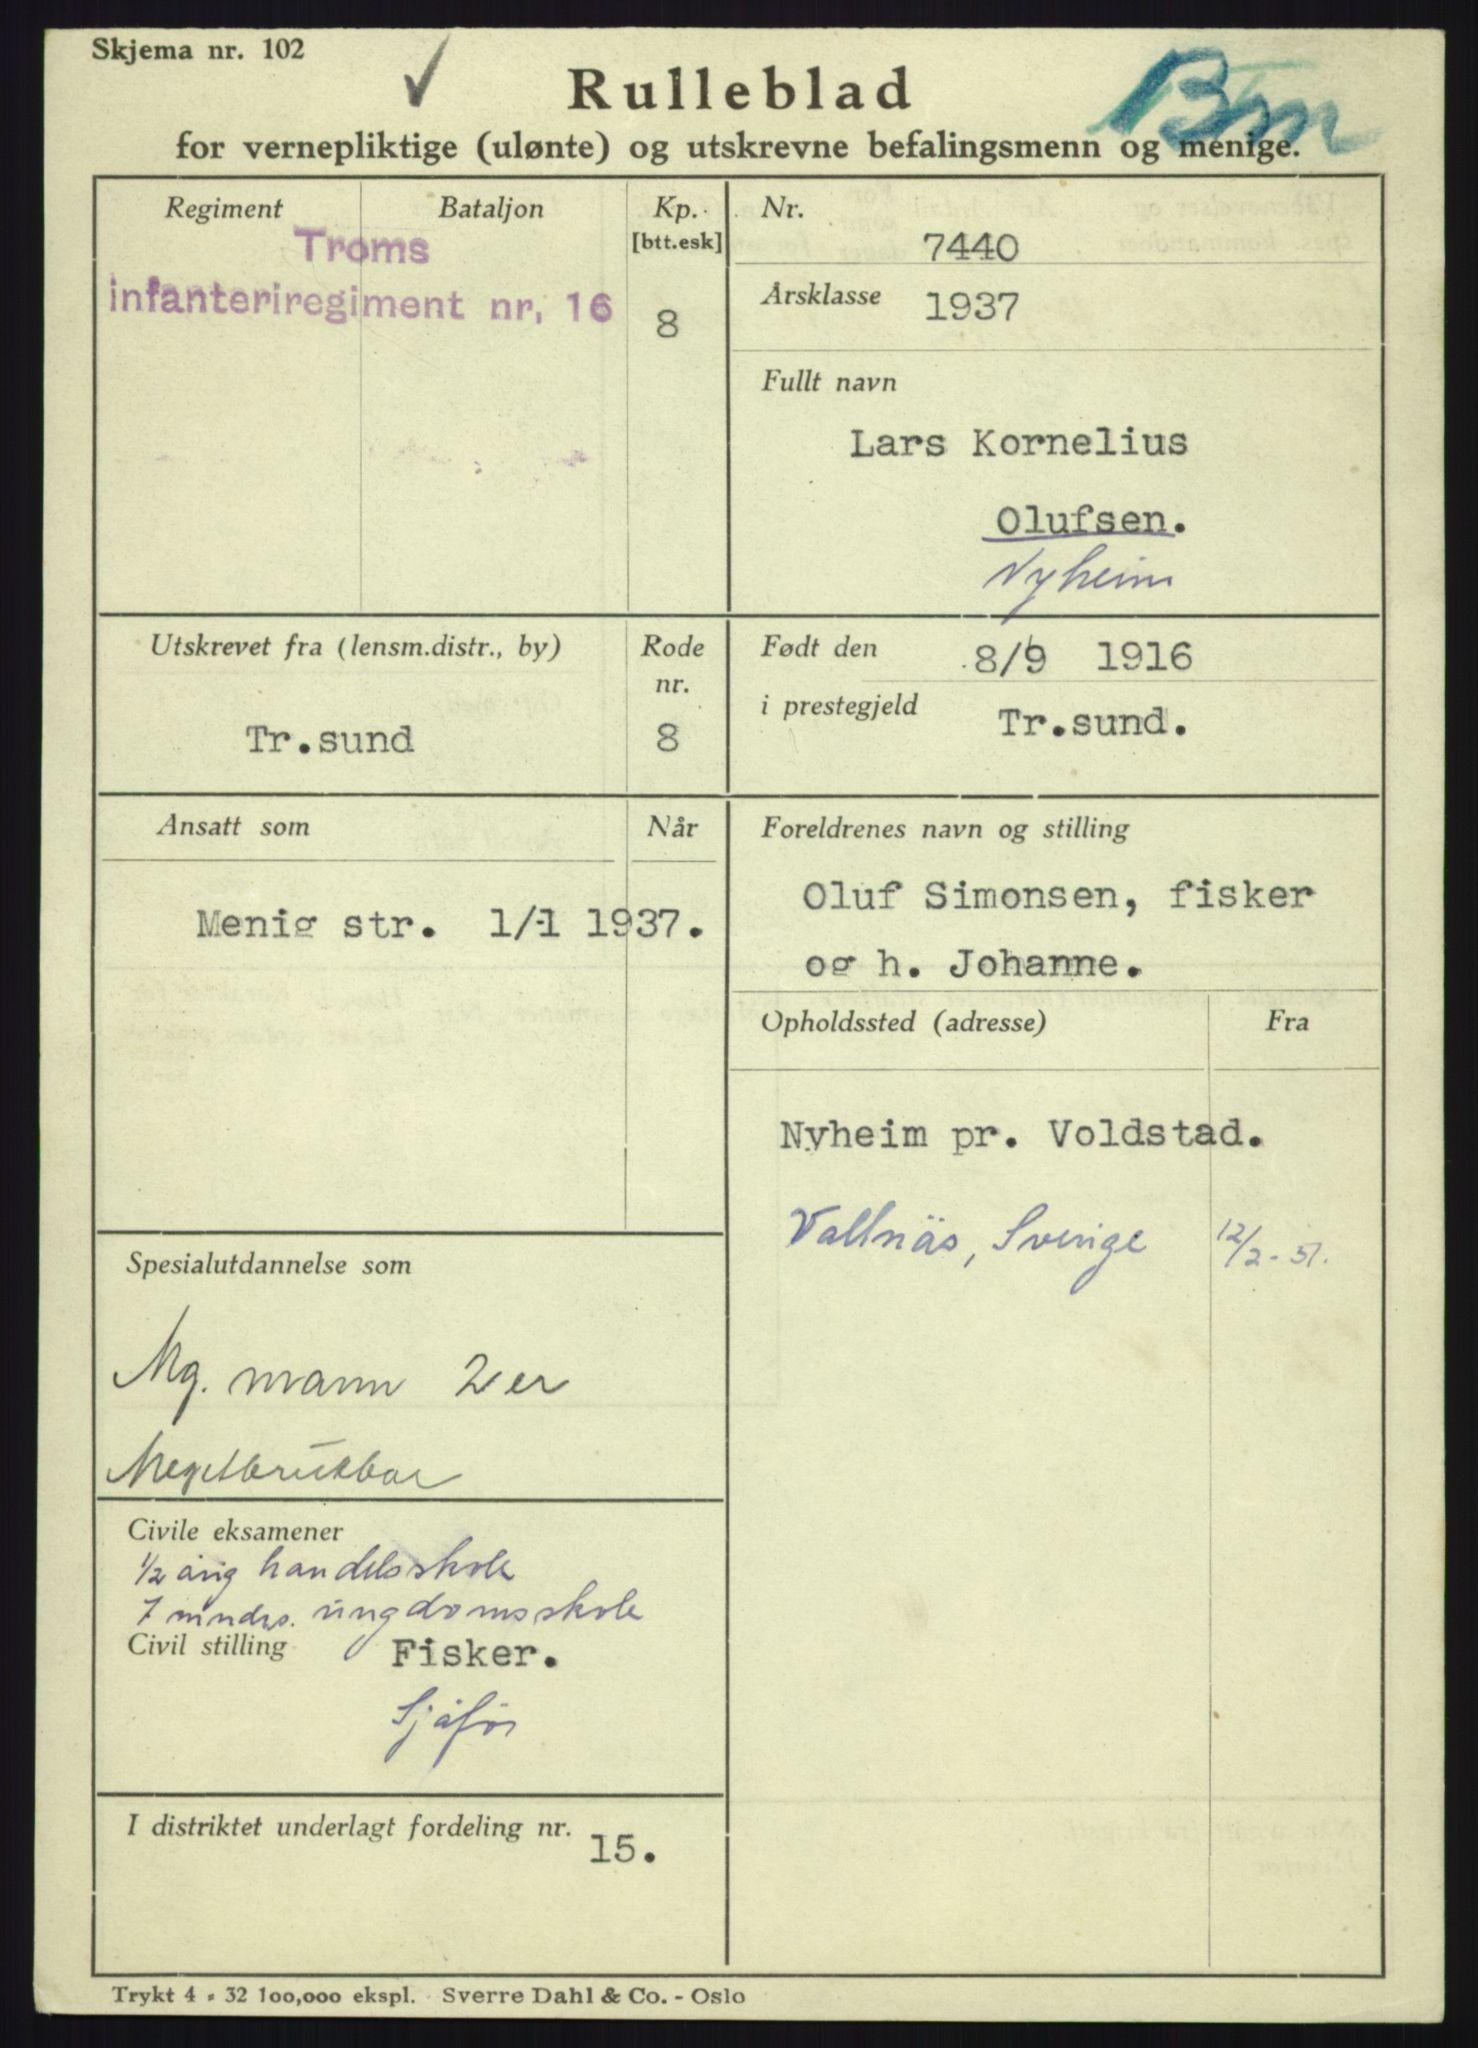 Skjema nr. 102
✓
Rulleblad
Bm
for vernepliktige (ulønte) og utskrevne befalingsmenn og menige.
Regiment
Bataljon
Kp.
[btt.esk]
Troms
infanteriregiment nr. 16
8
Nr.
7440
Årsklasse
1937
Fullt navn
Lars Kornelius
Olufsen.
Nyheim
Utskrevet fra (lensm.distr., by)
Rode
nr.
Tr.sund
8
Født den
8/9 1916
i prestegjeld
Tr.sund.
Ansatt som
Når
Menig str. 1/1 1937.
Foreldrenes navn og stilling
Oluf Simonsen, fisker
og h. Johanne.
Opholdssted (adresse)
Fra
Nyheim pr. Voldstad.
Vallnäs, Sverige 12/2-51.
Spesialutdannelse som
Mg. mann 2er
Megetbrukbar
Civile eksamener
1/2 årig handelsskole
7 mndrs. ungdomsskole
Civil stilling
Fisker.
Sjåfør
I distriktet underlagt fordeling nr.
15.
Trykt 4 - 32 100,000 ekspl. Sverre Dahl & Co. - Oslo